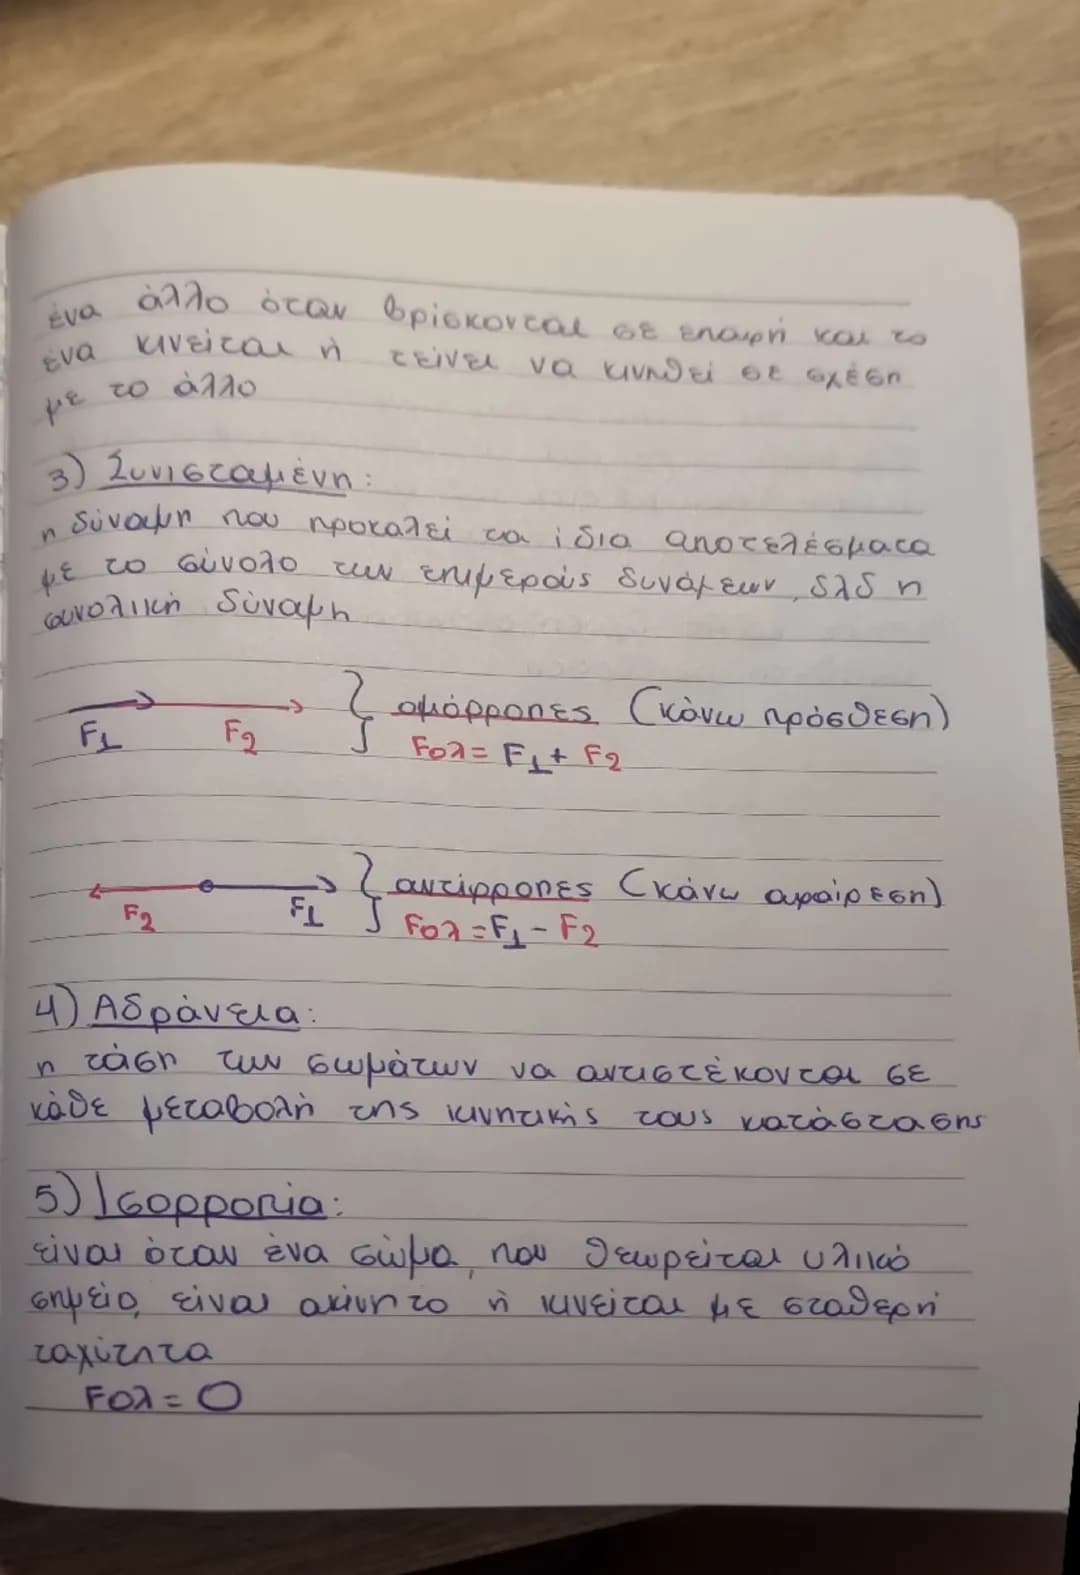 ένα άλλο όταν βρίσκονται σε επαφή και το
ένα κινείται ή τείνει να κινηθεί σε σχέση
με το άλλο
3) Συνισταμένη:
η δύναμη που προκαλεί τα ίδια αποτελέσματα
με το σύνολο των επιμέρους δυνάμεων, δλδ η
συνολική δύναμη
F1 F2 } ομόρροπες (κάνω πρόσθεση)
Fολ = F1 + F2
F2 F1 } αντίρροπες (κάνω αφαίρεση)
Fολ = F1 - F2
4) Αδράνεια:
η τάση των σωμάτων να αντιστέκονται σε
κάθε μεταβολή της κινητικής τους κατάστασης
5) Ισορροπία:
είναι όταν ένα σώμα, που θεωρείται υλικό
σημείο, είναι ακίνητο ή κινείται με σταθερή
ταχύτητα
Fολ = 0